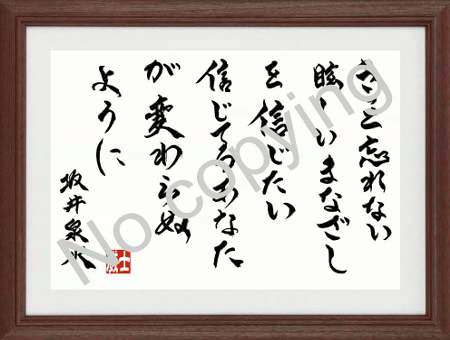 きっと忘れない
眩しいまなざし
を信じたい
信じてるあなた
が変わらぬ
ように
坂井泉水
No copying